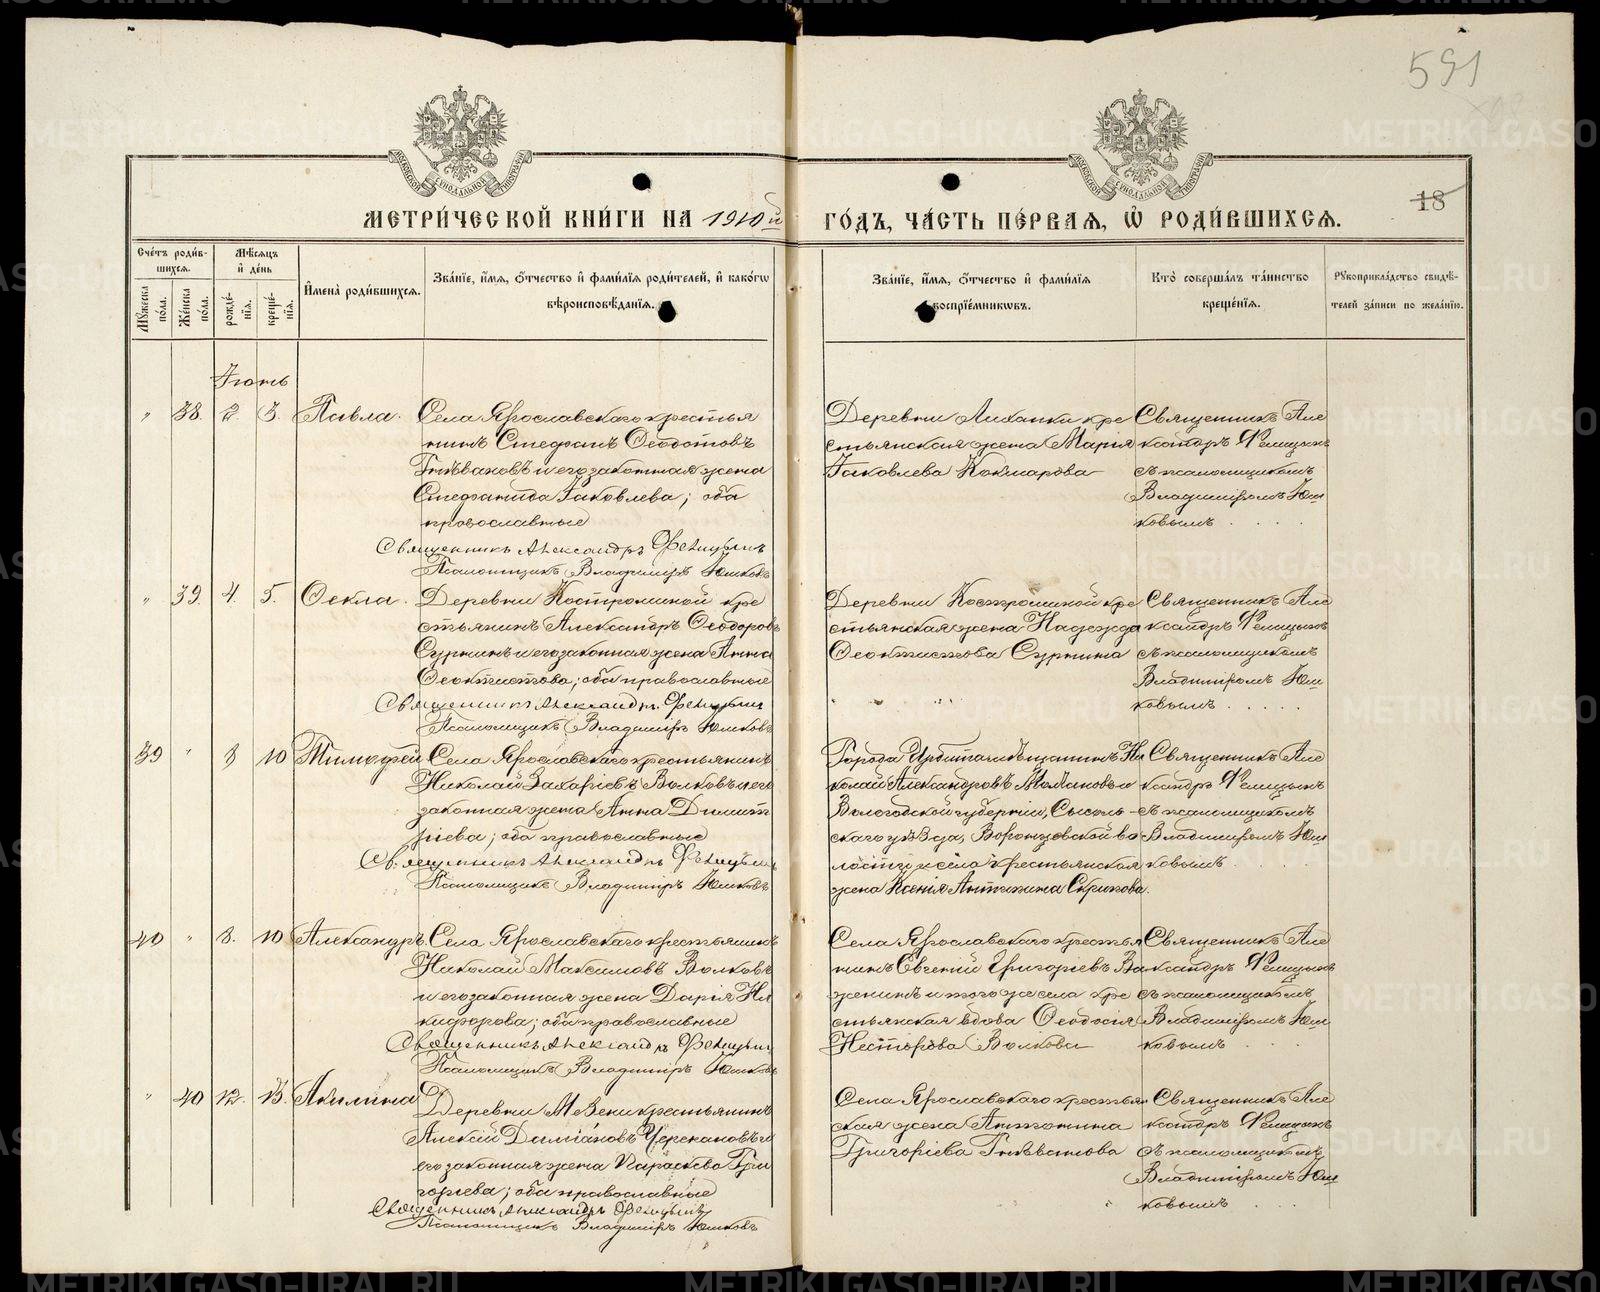 591
18
МЕТРИ́ЧЕСКОЙ КНИ́ГИ НА 1910й ГО́ДЪ, ЧА́СТЬ ПЕ́РВАЯ, Ѡ РОДИ́ВШИХСЯ.
Сче́тъ роди́вшихся.
Му́жеска по́ла.
Же́нска по́ла.
Мѣ́сяцъ и де́нь
рожде́нїя.
креще́нїя.
Имена̀ роди́вшихся.
Зва́нїе, и́мя, о́тчество и фами́лїя роди́телей, и како́гѡ
вѣроисповѣ́данїя.
Зва́нїе, и́мя, о́тчество и фами́лїя
воспрїе́мникѡвъ.
Кто̀ соверша́лъ та́инство
креще́нїя.
Рꙋкоприкла́дство свидѣ́-
телей за́писи по жела́нїю.
Іюнь
" 38. 2 3. Павла.
Села Ярославскаго крестья
нинъ Стефанъ Ѳеодотовъ
и его законная жена
Стефанида Іаковлева; оба
православные
Священникъ Александръ
Псаломщикъ Владиміръ Юшковъ
Деревни кре
стьянская жена Марія
Іаковлева
Священникъ Але
ксандръ
съ псаломщикомъ
Владиміромъ Юш
ковымъ
" 39. 4. 5. Ѳекла.
Деревни Костроминой кре
стьянинъ Александръ Ѳеодоровъ
Суринъ и его законная жена Анна
Ѳеоктистова; оба православные
Священникъ Александръ
Псаломщикъ Владиміръ Юшковъ
Деревни Костроминой кре
стьянская жена Надежда
Ѳеоктистова Сурнина
Священникъ Але
ксандръ
съ псаломщикомъ
Владиміромъ Юш
ковымъ
39 " 8 10 Тимофей
Села Ярославскаго крестьянинъ
Николай Захаріевъ Волковъ и его
законная жена Анна Димит
ріева; оба православные
Священникъ Александръ
Псаломщикъ Владиміръ Юшковъ
Города Ирбита мѣщанинъ Ни
колай Александровъ и
Вологодской губерніи, Сысоль-
скаго уѣзда, во
лости и села крестьянская
жена Ксенія
Священникъ Але
ксандръ
съ псаломщикомъ
Владиміромъ Юш
ковымъ
40 " 8. 10 Александръ
Села Ярославскаго крестьянинъ
Николай Максимовъ Волковъ
и его законная жена Дарія Ни
кифорова; оба православные
Священникъ Александръ
Псаломщикъ Владиміръ Юшковъ
Села Ярославскаго крестья
нинъ Евгеній Григоріевъ Ва
женинъ и того же села кре
стьянская вдова Ѳеодосія
Несторова Волкова
Священникъ Але
ксандръ
съ псаломщикомъ
Владиміромъ Юш
ковымъ
" 40 12. 13. Акилина
Деревни крестьянинъ
Алексій Даміановъ Черепановъ и
его законная жена Параскева Гри
горіева; оба православные
Священникъ Александръ
Псаломщикъ Владиміръ Юшковъ
Села Ярославскаго крестьян
ская жена Антонина
Григоріева
Священникъ Але
ксандръ
съ псаломщикомъ
Владиміромъ Юш
ковымъ
METRIKI.GASO-URAL.RU